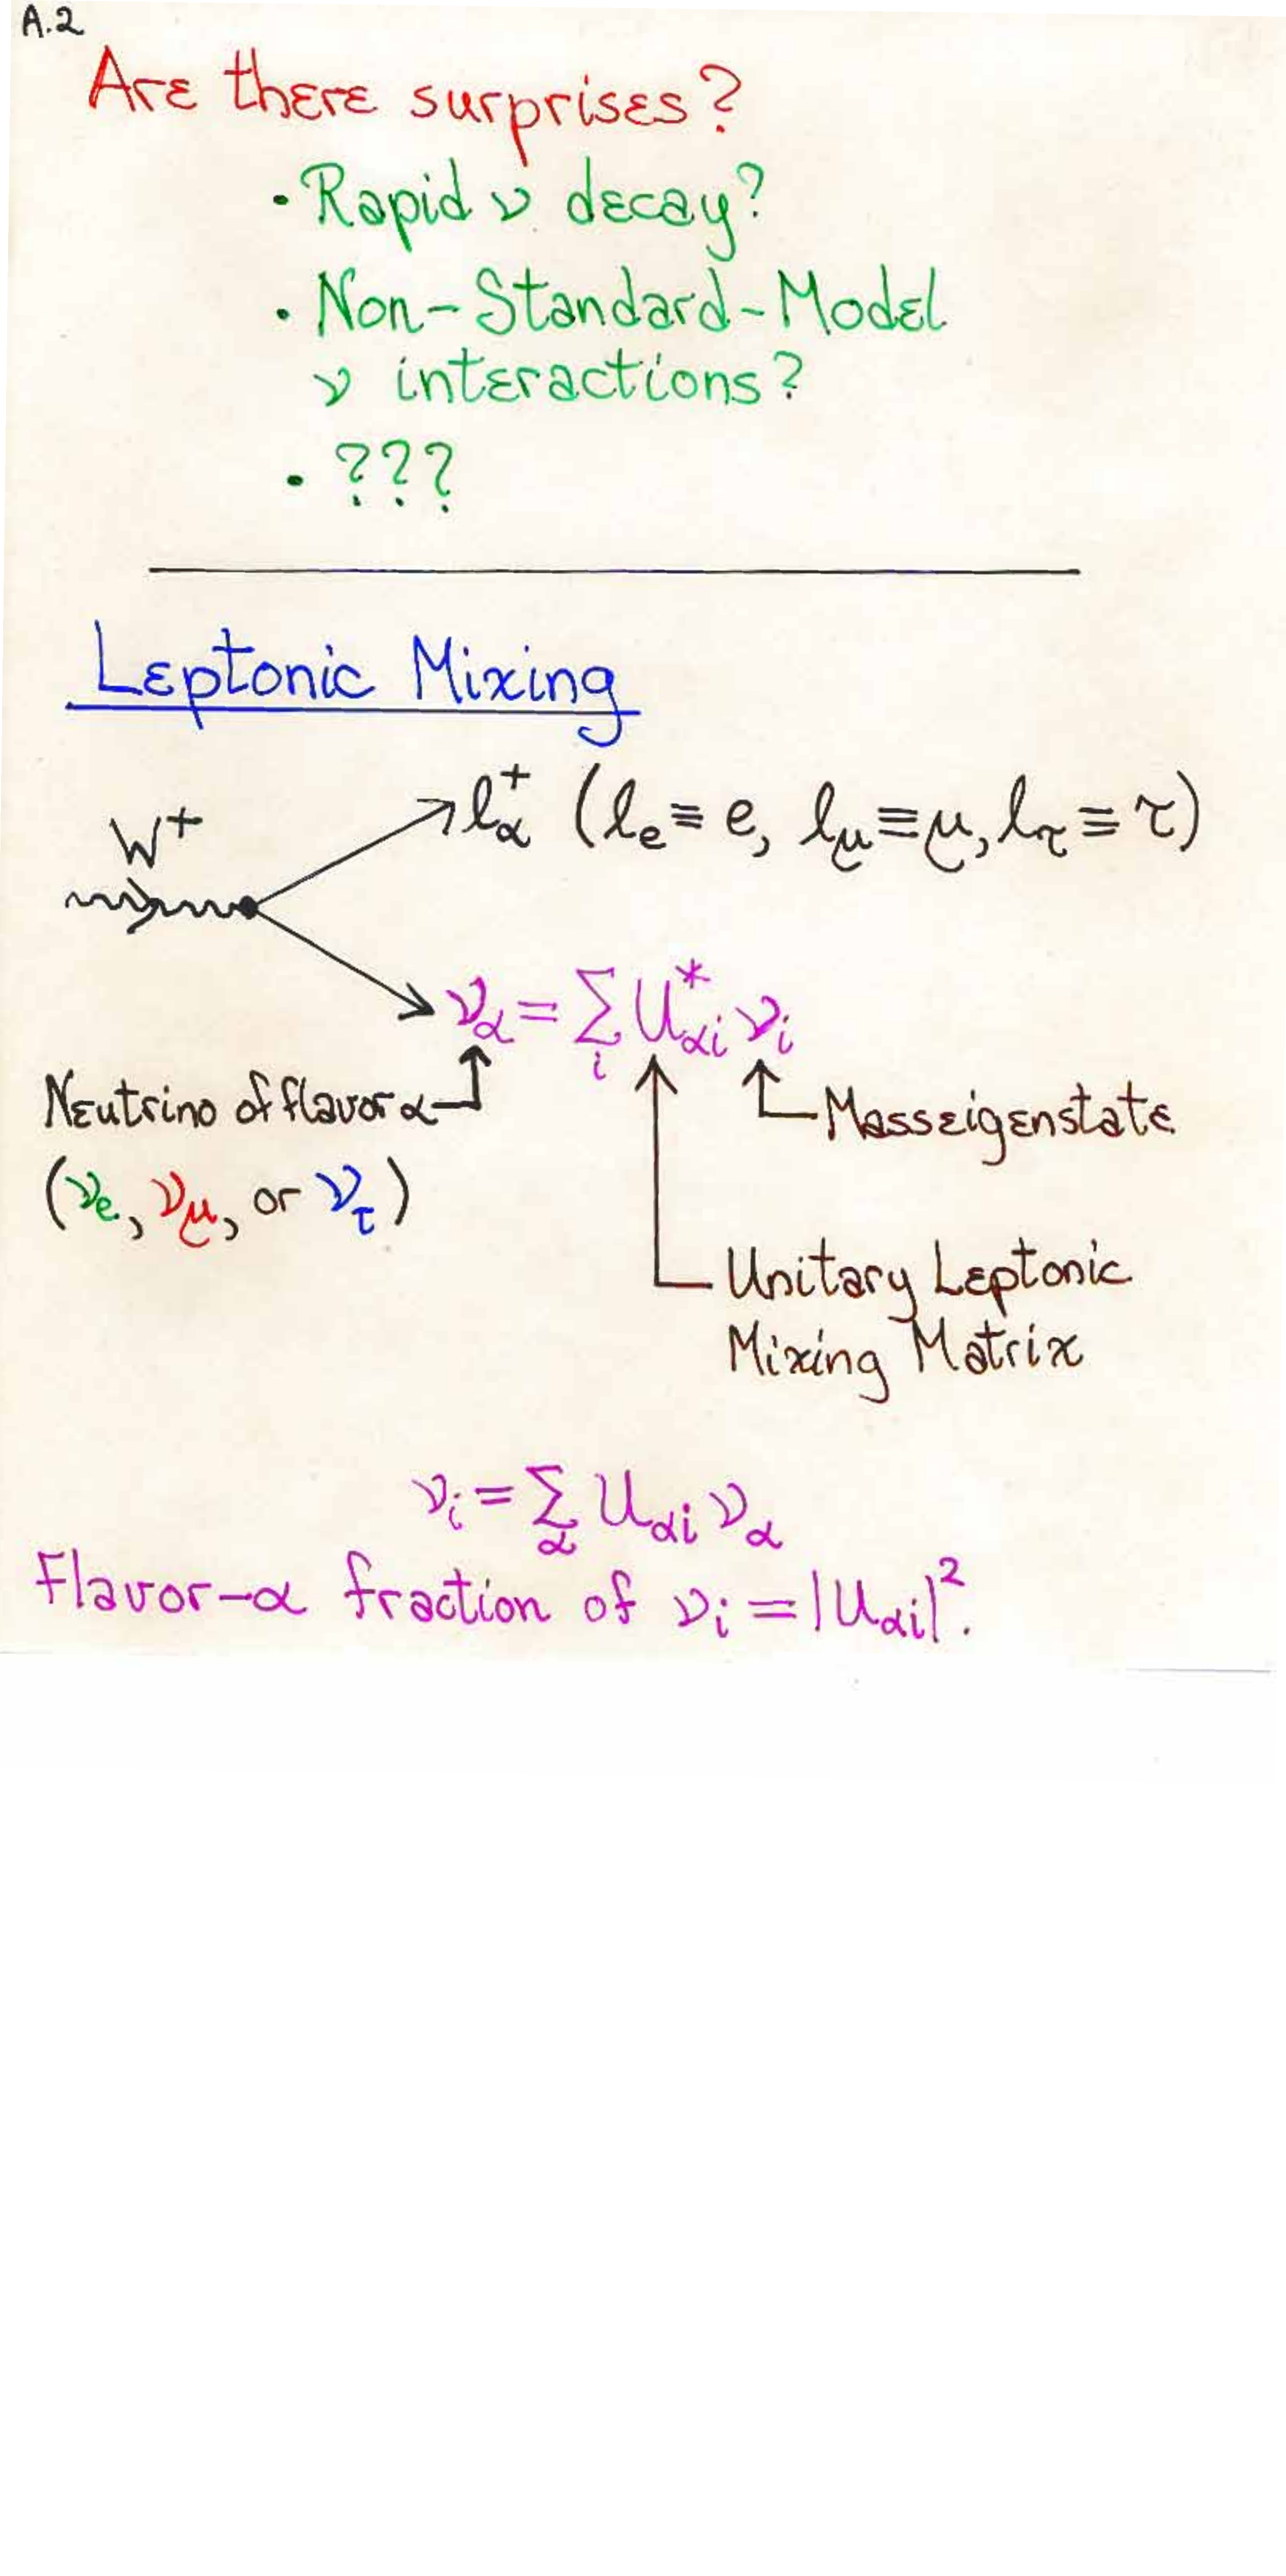 A.2
Are there surprises?
• Rapid ν decay?
• Non-Standard-Model
ν interactions?
• ???
Leptonic Mixing
W⁺
ℓ⁺_α (ℓ_e ≡ e, ℓ_μ ≡ μ, ℓ_τ ≡ τ)
ν_α = Σ_i U*_αi ν_i
Neutrino of flavor α
Mass eigenstate
(ν_e, ν_μ, or ν_τ)
Unitary Leptonic
Mixing Matrix
ν_i = Σ_α U_αi ν_α
Flavor-α fraction of ν_i = |U_αi|².